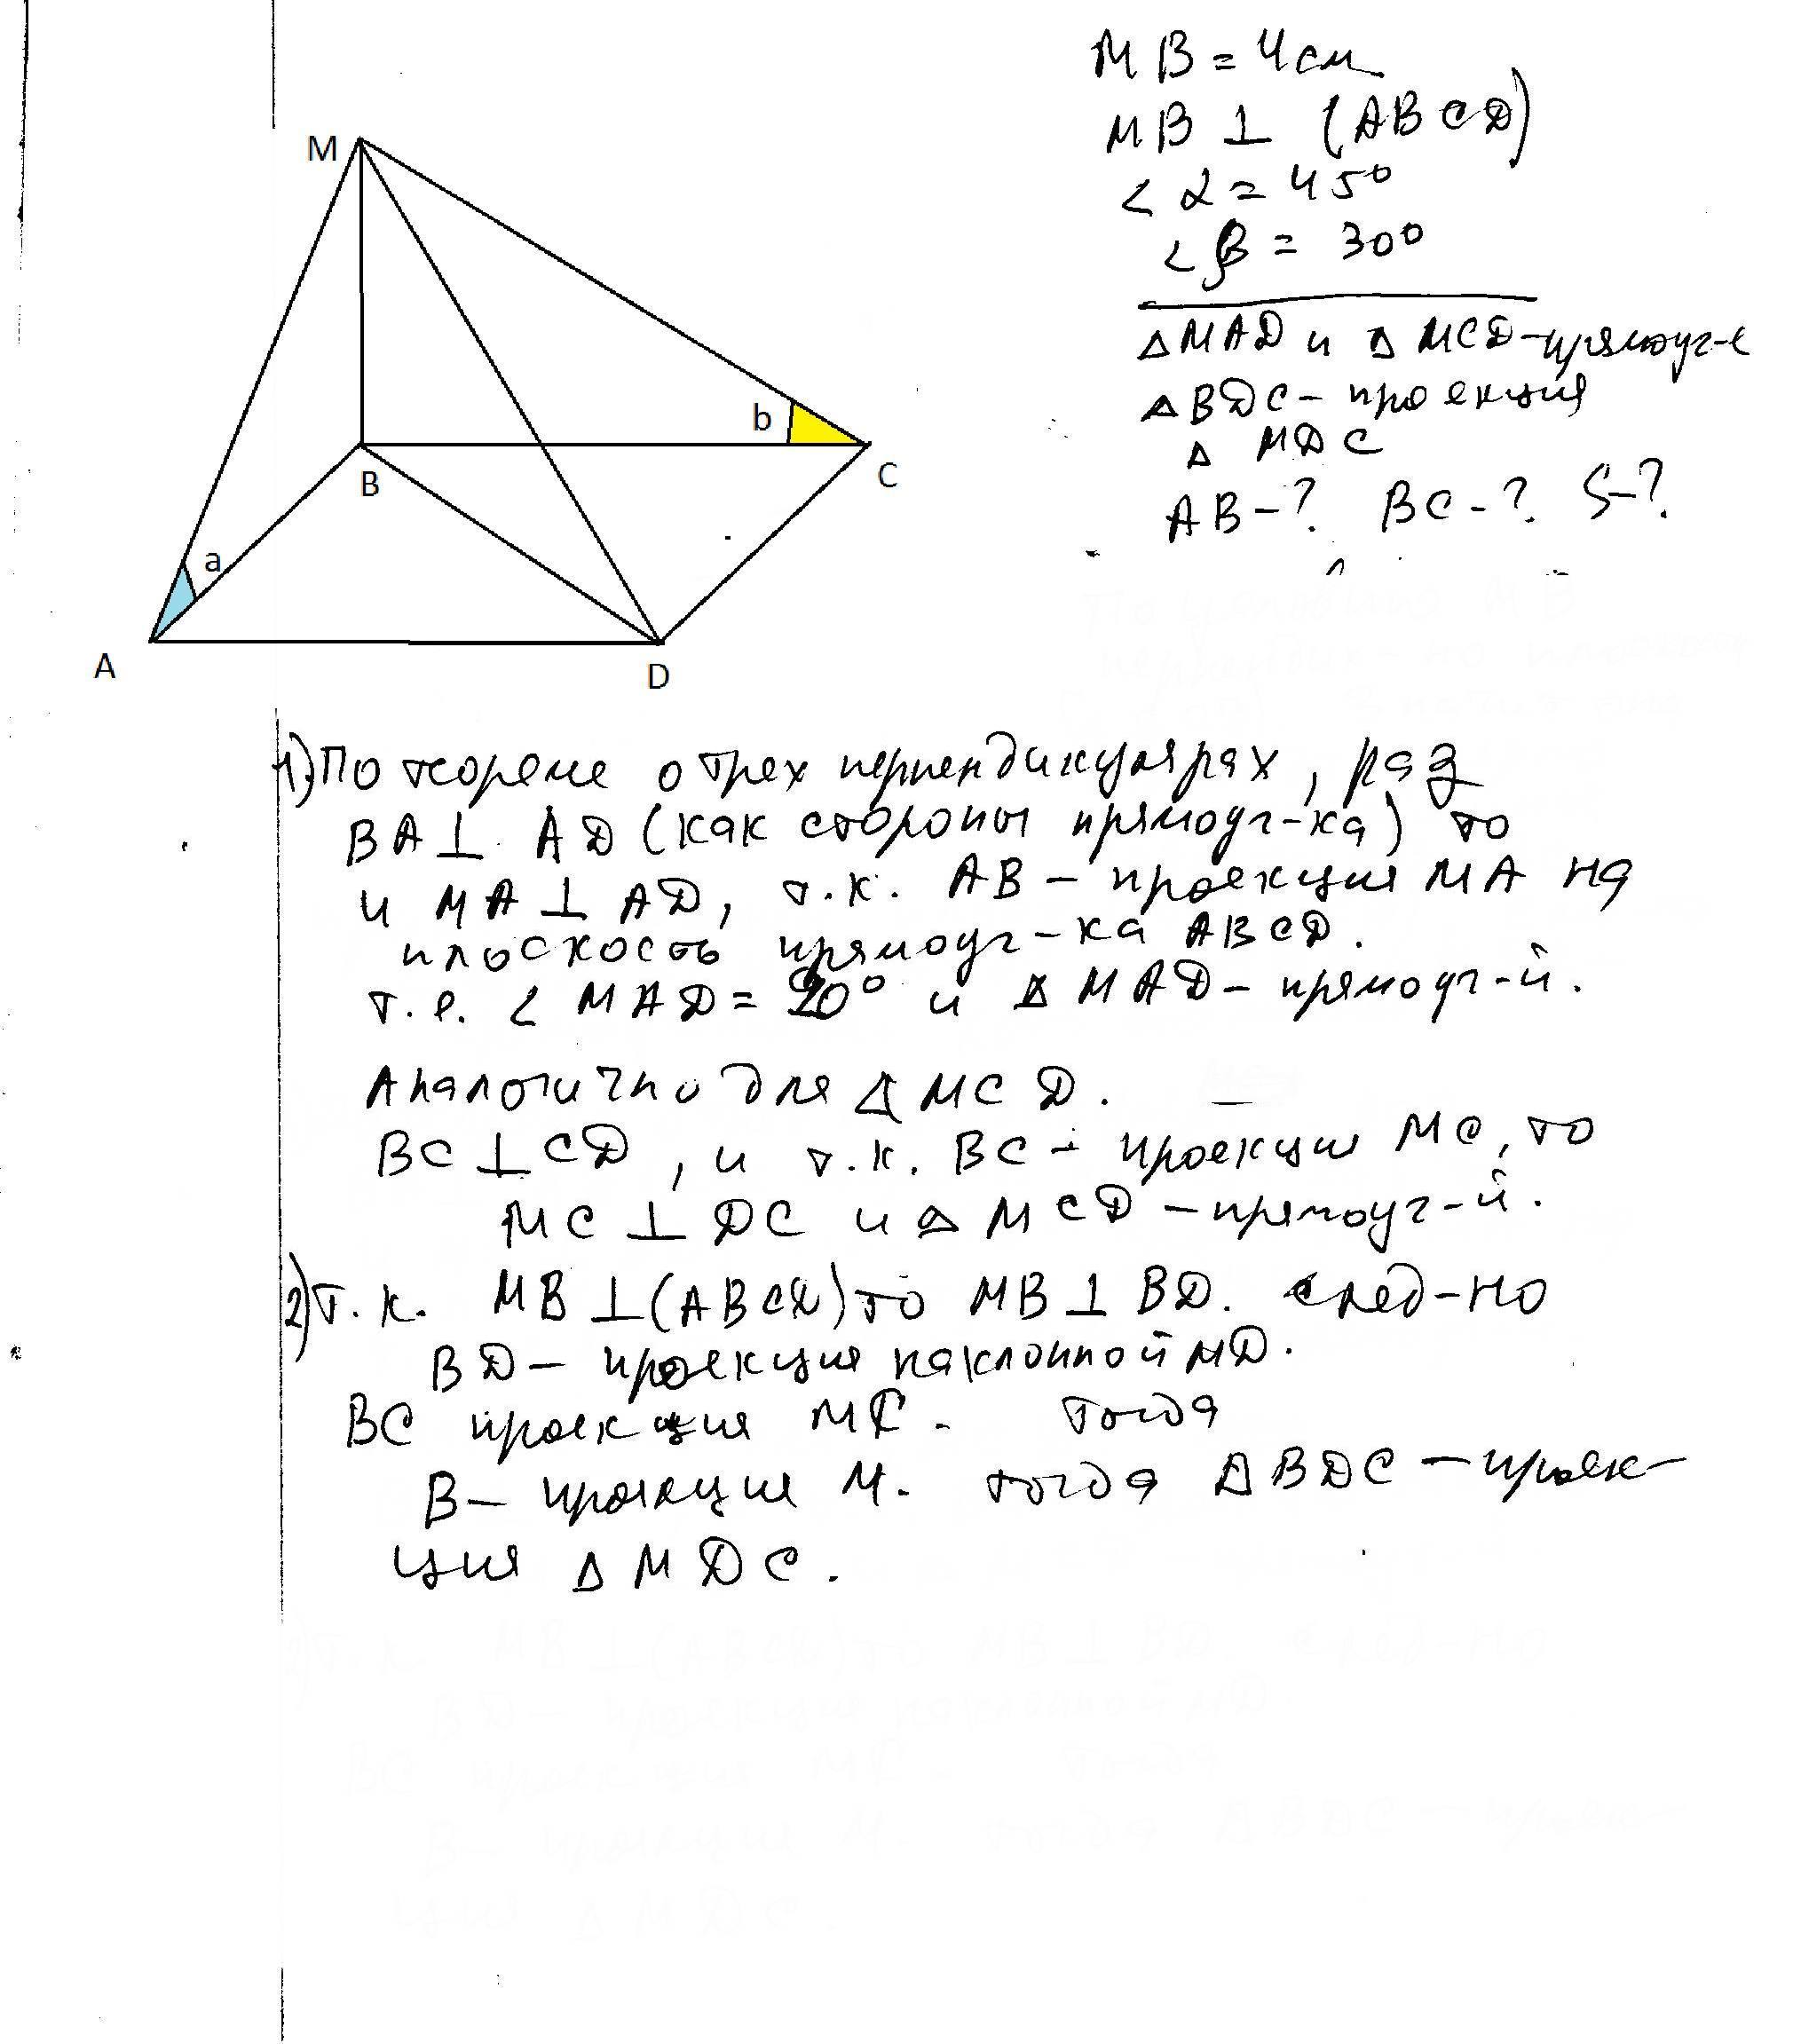 MB = 4 см
MB ⊥ (ABCD)
< α = 45°
< β = 30°
△ MAD и △ MCD - прямоуг-е
△ BDC - проекция
△ MDC
AB - ? BC - ? S - ?
M
b
B
C
a
A
D
1) По теореме о трех перпендикулярах, раз
BA ⊥ AD (как стороны прямоуг-ка) то
и MA ⊥ AD, т.к. AB - проекция MA на
плоскость прямоуг-ка ABCD.
т.е. < MAD = 90° и △ MAD - прямоуг-й.
Аналогично для △ MCD.
BC ⊥ CD, и т.к. BC - проекция MC, то
MC ⊥ DC и △ MCD - прямоуг-й.
2) т.к. MB ⊥ (ABCD) то MB ⊥ BD. след-но
BD - проекция наклонной MD.
BC проекция MC. Тогда
B - проекция M. тогда △ BDC - проек-
ция △ MDC.